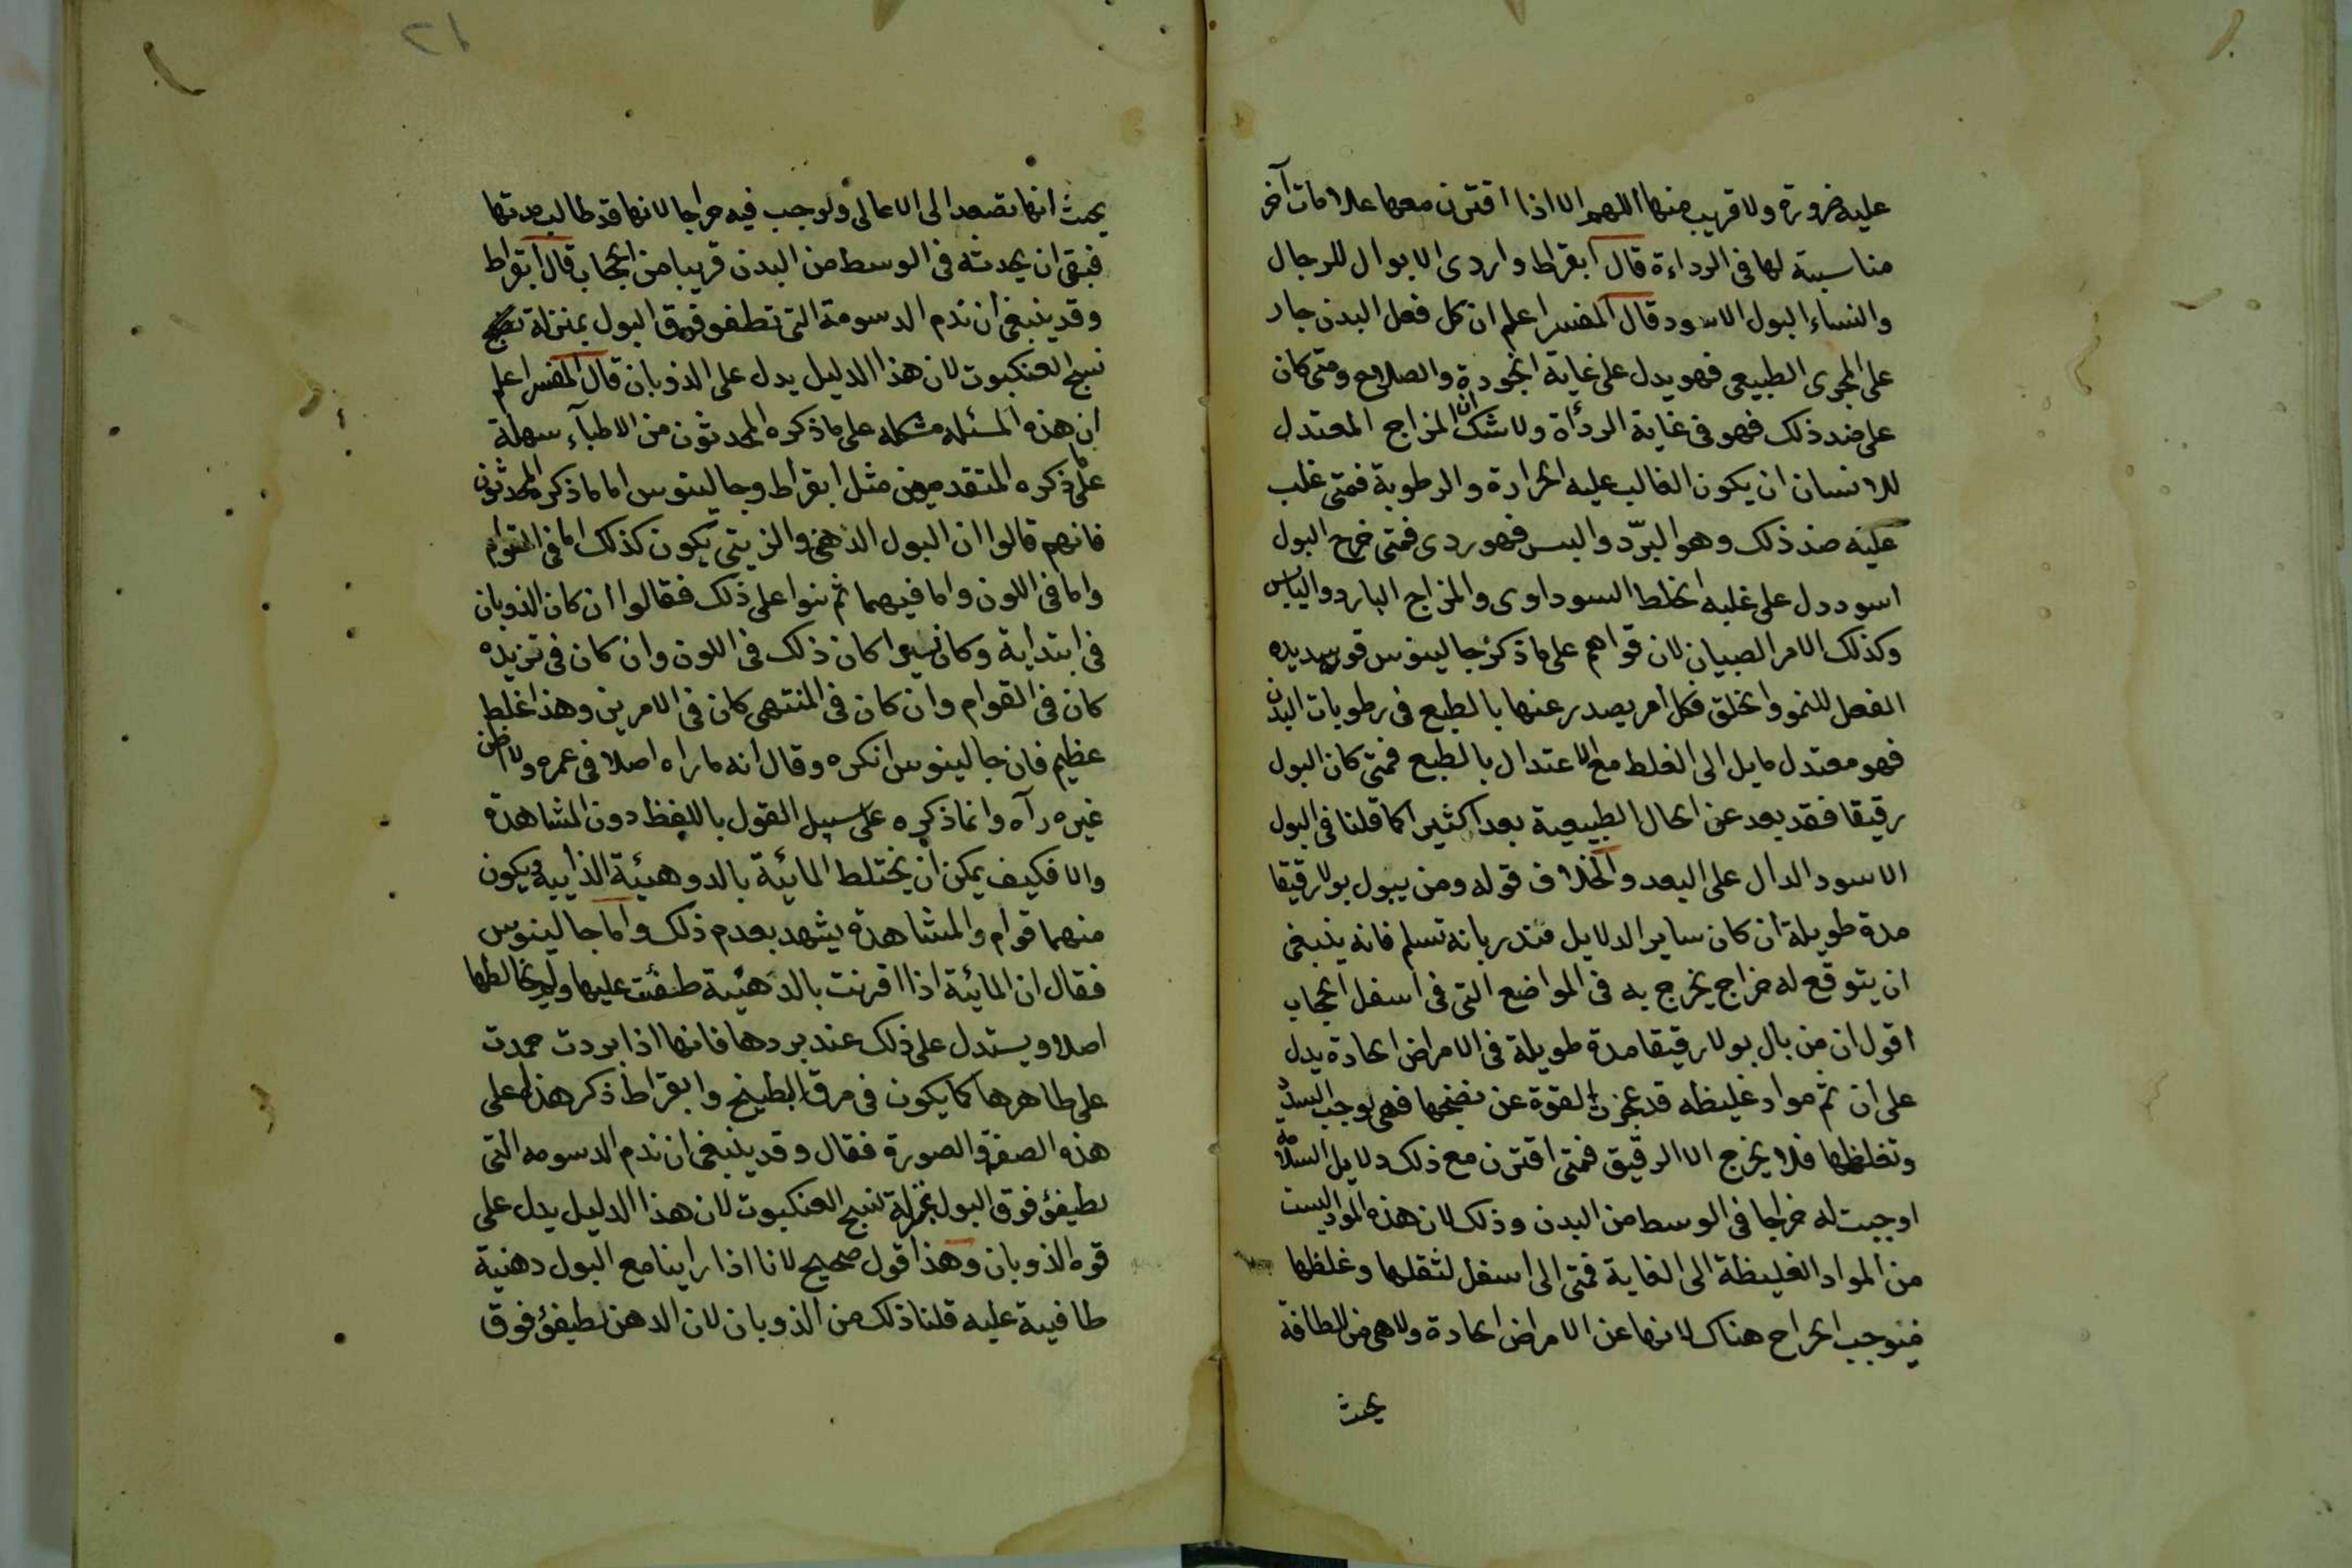 عليه ضرورة ولا قريب منها اللهم الا اذا اقترن معها علامات آخر
مناسبة لها فى الرداءة قال ابقراط واردى الابوال للرجال
والنساء البول الاسود قال المفسر اعلم ان كل فعل البدن جار
على المجرى الطبيعى فهو يدل على غاية الجودة والصلاح ومتى كان
على ضد ذلك فهو فى غاية الردأة ولا شك ان المزاج المعتدل
للانسان ان يكون الغالب عليه الحرارة والرطوبة فمتى غلب
عليه ضد ذلك وهو البرّد واليبس فهو ردى فمتى خرج البول
اسود دل على غلبه الخلط السوداوى والمزاج البارد واليابس
وكذلك الامر الصبيان لان قواهم على ما ذكره جالينوس قوى
الفعل للنمو والخلق فكل أمر يصدر عنها بالطبع فى رطوبات البدن
فهو معتدل مايل الى الغلظ مع الاعتدال بالطبع فمتى كان البول
رقيقا فقد بعد عن الحال الطبيعية بعدا كثيرا كما قلنا فى البول
الاسود الدال على البعد والخلاف قوله ومن يبول بولا رقيقا
مدة طويلة ان كان ساير الدلايل تنذر بانه تسلم فانه ينبغى
ان يتوقع له خراج يخرج به فى المواضع التى فى اسفل الحجاب
اقول ان من بال بولا رقيقا مدة طويلة فى الامراض الحادة يدل
على ان ثم مواد غليظه قد عجزت القوة عن نضجها فهى توجب السدد
وتغلظها فلا يخرج الا الرقيق فمتى اقترن مع ذلك دلايل السلامه
اوجبت له خراجا فى الوسط من البدن وذلك لان هذه المواد ليست
من المواد الغليظة الى الغاية فمتى الى اسفل لثقلها وغلظها
فيوجب الخراج هناك لانها عن الامراض الحادة ولا هى من اللطافة
بحيث
٢١
بحيث انها تصعد الى الاعالى وتوجب فيه خراجا لانها قد طالب مدتها
فبقى ان يحدثه فى الوسط من البدن قريبا من الحجاب قال ابقراط
وقد ينبغى أن تذم الدسومة التى تطفو فوق البول بمنزلة
نسج العنكبوت لان هذا الدليل يدل على الذوبان قال المفسر اعلم
ان هذه المسئله مشكله على ما ذكره المحدثون من الاطبآء سهلة
على ما ذكره المتقدمين مثل ابقراط وجالينوس اما ما ذكره المحدثون
فانهم قالوا ان البول الدهنى والزيتى يكون كذلك اما فى القوام
واما فى اللون واما فيهما ثم بنوا على ذلك فقالوا ان كان الذوبان
فى ابتداية وكان يسيرا كان ذلك فى اللون وان كان فى تزيده
كان فى القوام وان كان فى المنتهى كان فى الامرين وهذا غلط
عظيم فان جالينوس انكره وقال انه ما راه اصلا فى عمره ولا اظن
غيره رآه وانما ذكره على سبيل القول باللفظ دون المشاهدة
والا فكيف يمكن أن يختلط المائية بالدوهنية الذايبة ويكون
منهما قوام والمشاهدة يشهد بعدم ذلك واما جالينوس
فقال ان المائية اذا اقرنت بالدهنية طفئت عليها ولم يخالطها
اصلا ويستدل على ذلك عند بردها فانها اذا بردت جمدت
على ظاهرها كما يكون فى مرق الطبيخ وابقراط ذكر هذا على
هذه الصفة والصورة فقال وقد ينبغى ان تذم الدسومه التى
تطيفؤ فوق البول بمنزلة نسج العنكبوت لان هذا الدليل يدل على
قوه الذوبان وهذا قول صحيح لانا اذا راينا مع البول دهنية
طافيية عليه قلنا ذلك من الذوبان لان الدهن تطيفؤ فوق